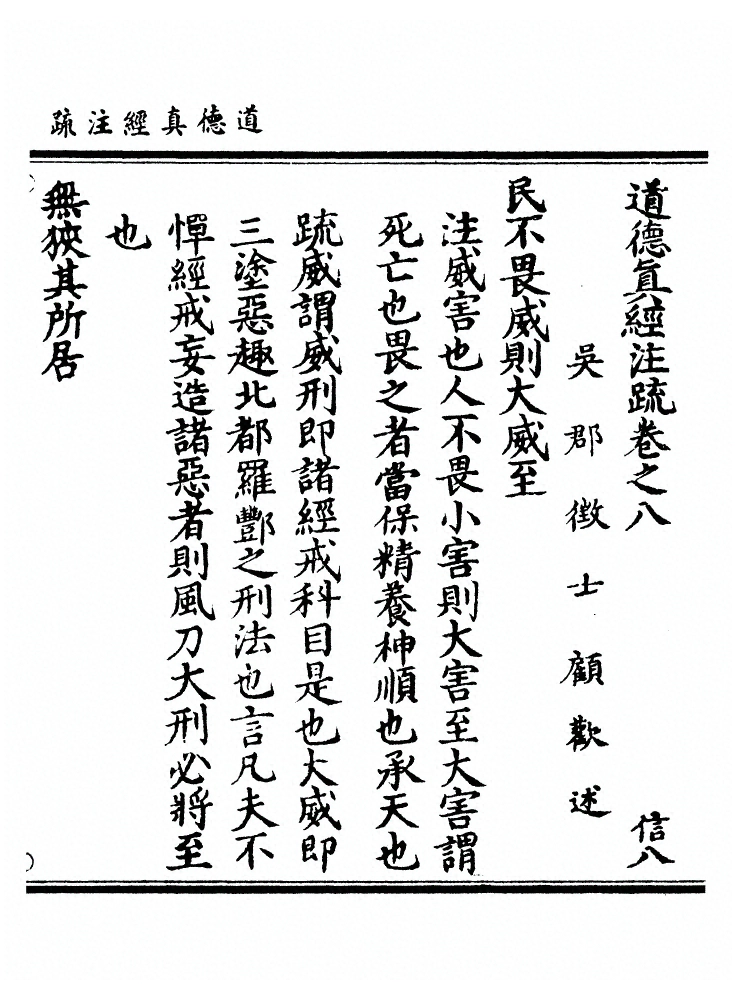 道德真經注疏
道德眞經注䟽卷之八 信八
吳郡徴士顧歡述
民不畏威則大威至
注威害也人不畏小害則大害至大害謂
死亡也畏之者當保精養神順也承天也
䟽威謂威刑即諸經戒科目是也大威即
三塗惡趣北都羅酆之刑法也言凡夫不
憚經戒妄造諸惡者則風刀大刑必將至
也
無狹其所居